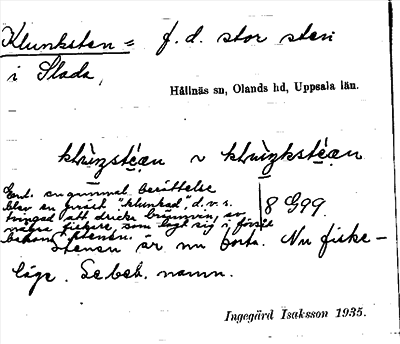 Klunksten = f. d. stor sten
i Slada,
Hållnäs sn, Olands hd, Uppsala län.
Enl. en gammal berättelse
blev en präst "klunkad", d. v. s.
tvingad att dricka brännvin, av
några fiskare, som lagt sig i försåt
bakom stenen.
8 G 99.
Stenen är nu borta. Nu fiske-
läge. Se beb. namn.
Ingegärd Isaksson 1935.